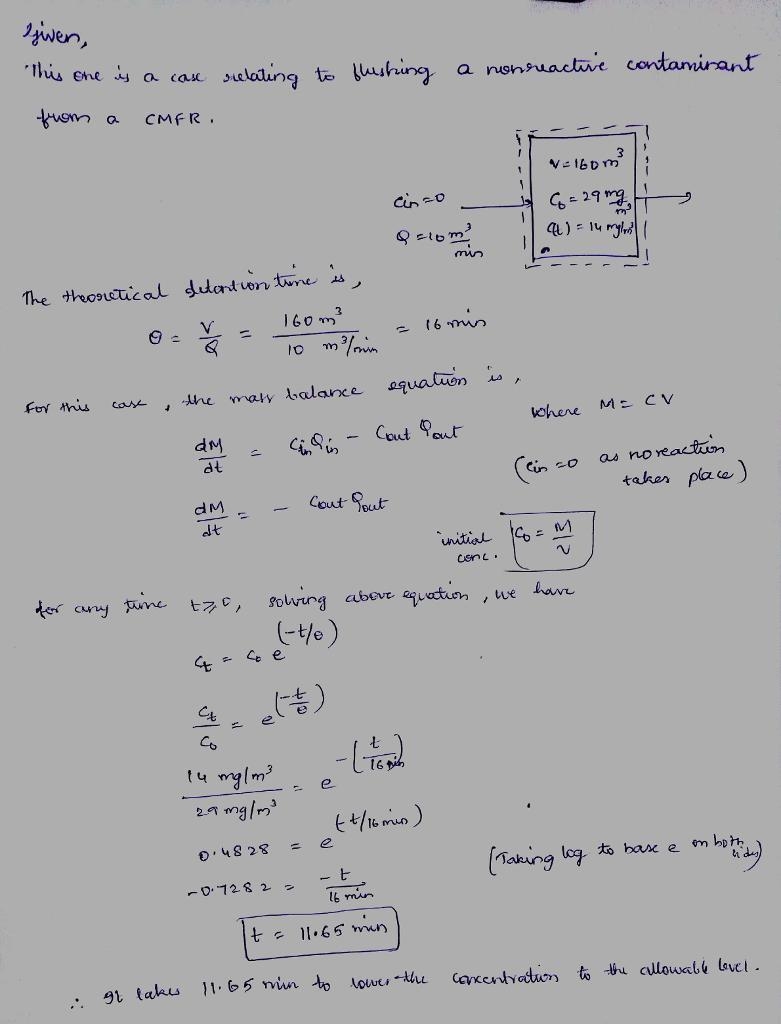 Given,
This one is a case relating to flushing a nonreactive contaminant
from a CMFR.
V = 160 m³
C₀ = 29 mg/m³
C(t) = 14 mg/m³
Cin = 0
Q = 10 m³/min
The theoretical detention time is,
θ = V/Q = 160 m³ / 10 m³/min = 16 min
For this case, the mass balance equation is,
where M = CV
dM/dt = Cin Qin - Cout Qout
(Cin = 0 as no reaction
takes place)
dM/dt = - Cout Qout
initial conc. C₀ = M/V
for any time t ≥ 0, solving above equation, we have
Ct = C₀ e^(-t/θ)
Ct/C₀ = e^(-t/θ)
14 mg/m³ / 29 mg/m³ = e^-(t/16 min)
0.4828 = e^(-t/16 min)
(Taking log to base e on both sides)
-0.7282 = -t/16 min
t = 11.65 min
∴ It takes 11.65 min to lower the concentration to the allowable level.